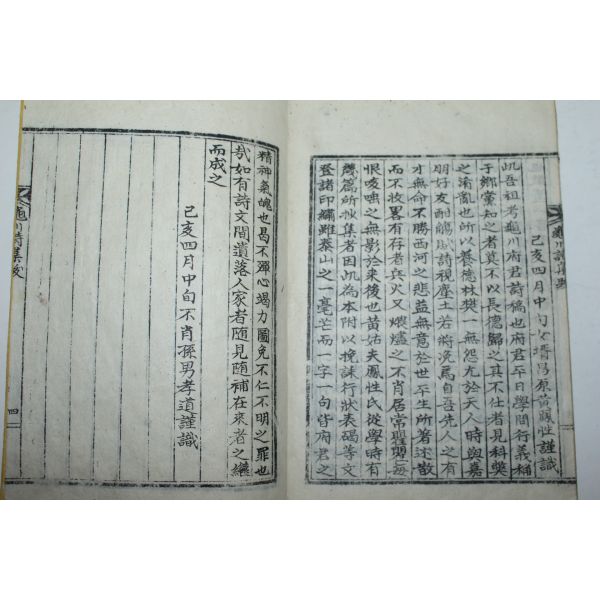 己亥四月中旬女壻昌原黃鳳性謹識
此吾祖考龜川府君詩稿也府君平日學問行義稱
于鄉黨知之者莫不以長德歸之其不仕者見科獎
之淆亂也所以養德林樊一無怨尤於天人時與嘉
明好友酣觴賦詩視塵土若將浼焉自吾先人之有
才無命不勝西河之悲益無意於世平生所著述散
而不收畧有存者兵火又煨燼之不肖居常瞿瞿每
恨咳唾之無影於來後也黃姑夫鳳性氏從學時有
幾篇所抄集者因此為本附以挽誄行狀表碣等文
登諸印繡雖泰山之一毫芒而一字一句皆府君之
精神氣魄也曷不殫心竭力圖免不仁不明之罪也
哉如有詩文間遺落人家者隨見隨補在來者之繼
而成之
己亥四月中旬不肖孫男孝道謹識
龜川詩集跋
四